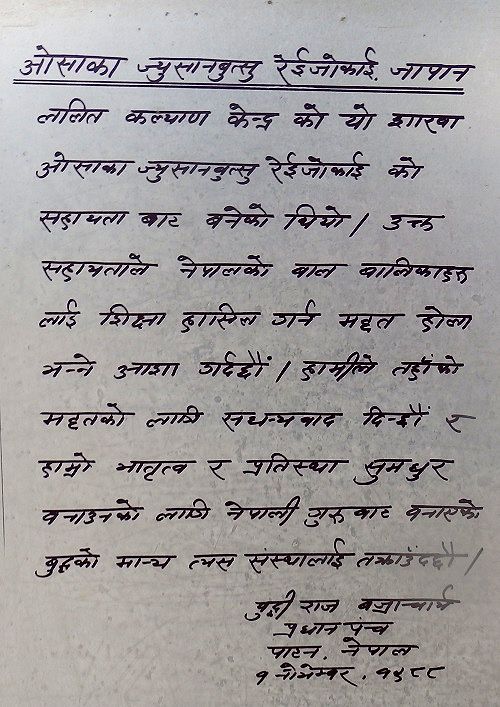 ओसाका ज्युसानबुत्सु रेईजोकाई जापान
ललित कल्याण केन्द्र को यो शाखा
ओसाका ज्युसानबुत्सु रेईजोकाई को
सहायता बाट बनेको थियो । उक्त
सहायताले नेपालको बाल बालिकाहरु
लाई शिक्षा हासिल गर्न मद्दत होला
भन्ने आशा गर्दछौं । हामीले तहाँको
मद्दतको लागि सधन्यवाद दिन्छौं र
हाम्रो भातृत्व र प्रतिस्था सुमधुर
बनाउनको लागि नेपाली गुरु बाट बनाएको
बुद्धको मान्य त्यस संस्थालाई
बुद्धी राज बज्राचार्य
प्रधान पंच
पाटन. नेपाल
१ नोभेम्बर. १९८८